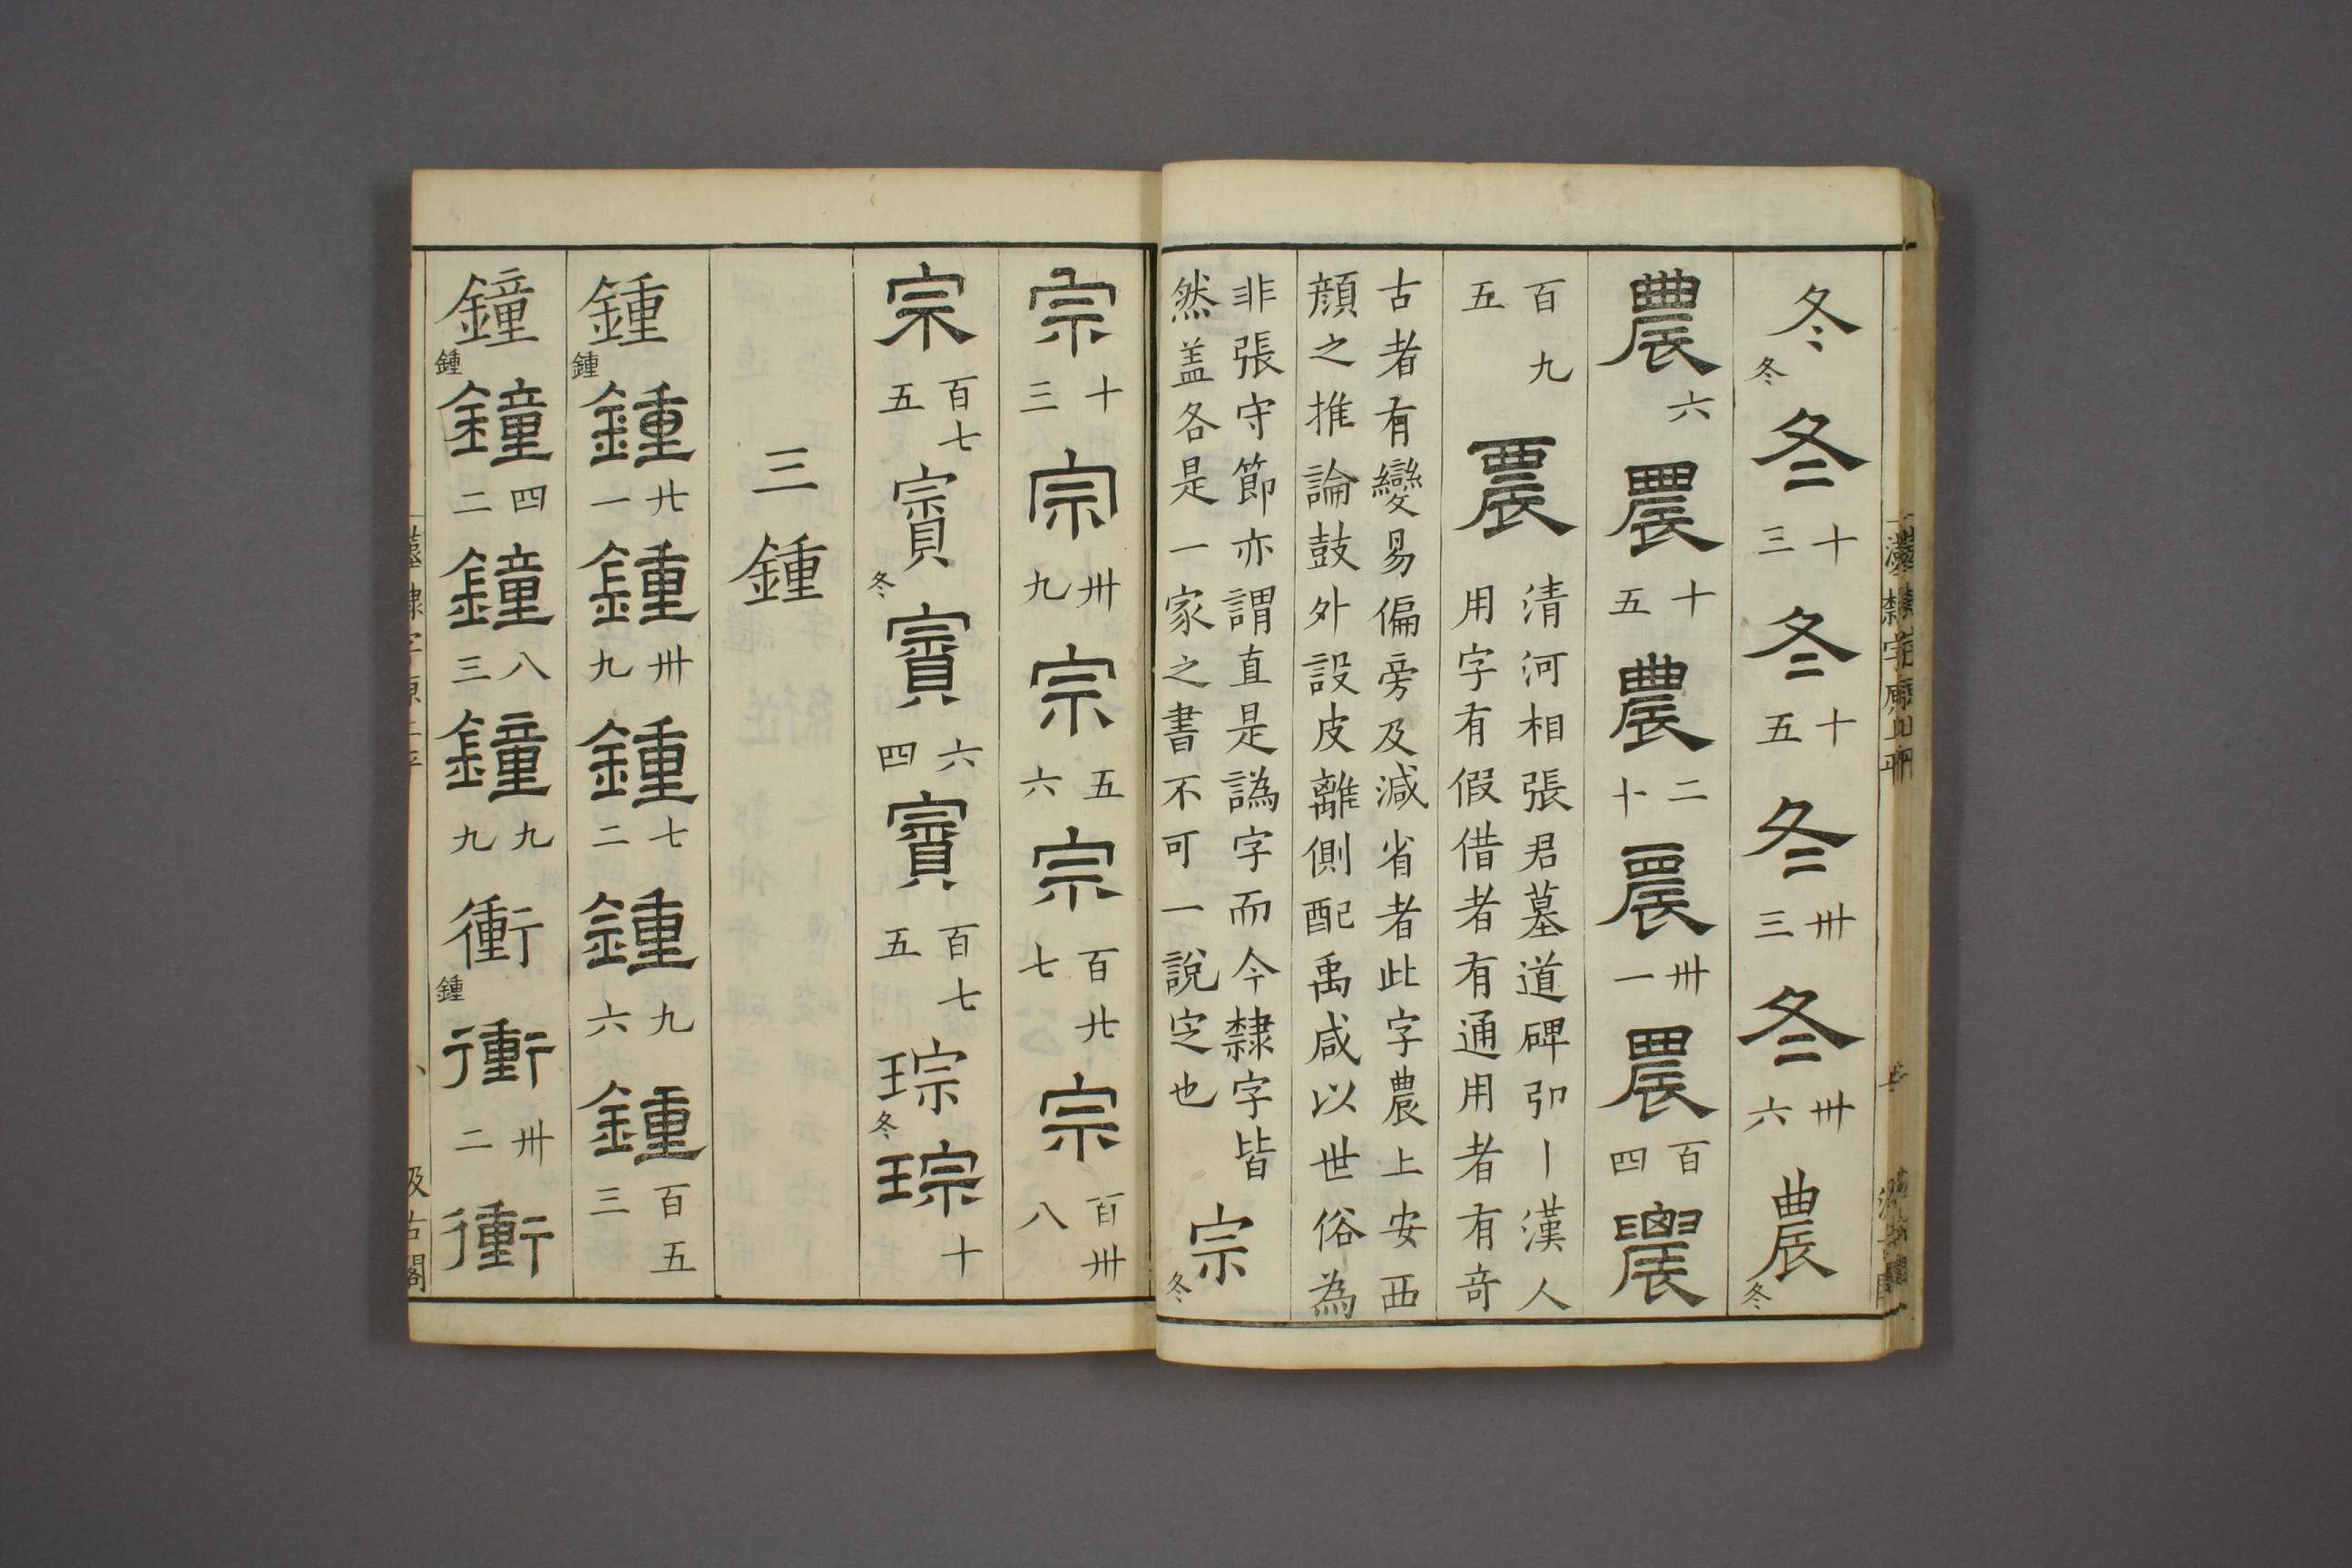 冬冬冬十三冬十五冬卅三冬卅六農冬
農六農十五農二十農卅一農百四農
百九五農清河相張君墓道碑卭丨漢人用字有假借者有通用者有竒
古者有變易偏旁及減省者此字農上安西顔之推論鼓外設皮離側配禹咸以世俗為
非張守節亦謂直是譌字而今隸字皆然盖各是一家之書不可一說定也宗冬
宗十三宗卅九宗五六宗百廿七宗百卅八
宗百七五賨冬賨六四賨百七五琮冬琮十
三鍾
鍾鍾鍾廿一鍾卅九鍾七二鍾九六鍾百五三
鐘鍾鐘四二鐘八三鐘九九衝鍾衝卅二衝
漢隸字原上平
汲古閣